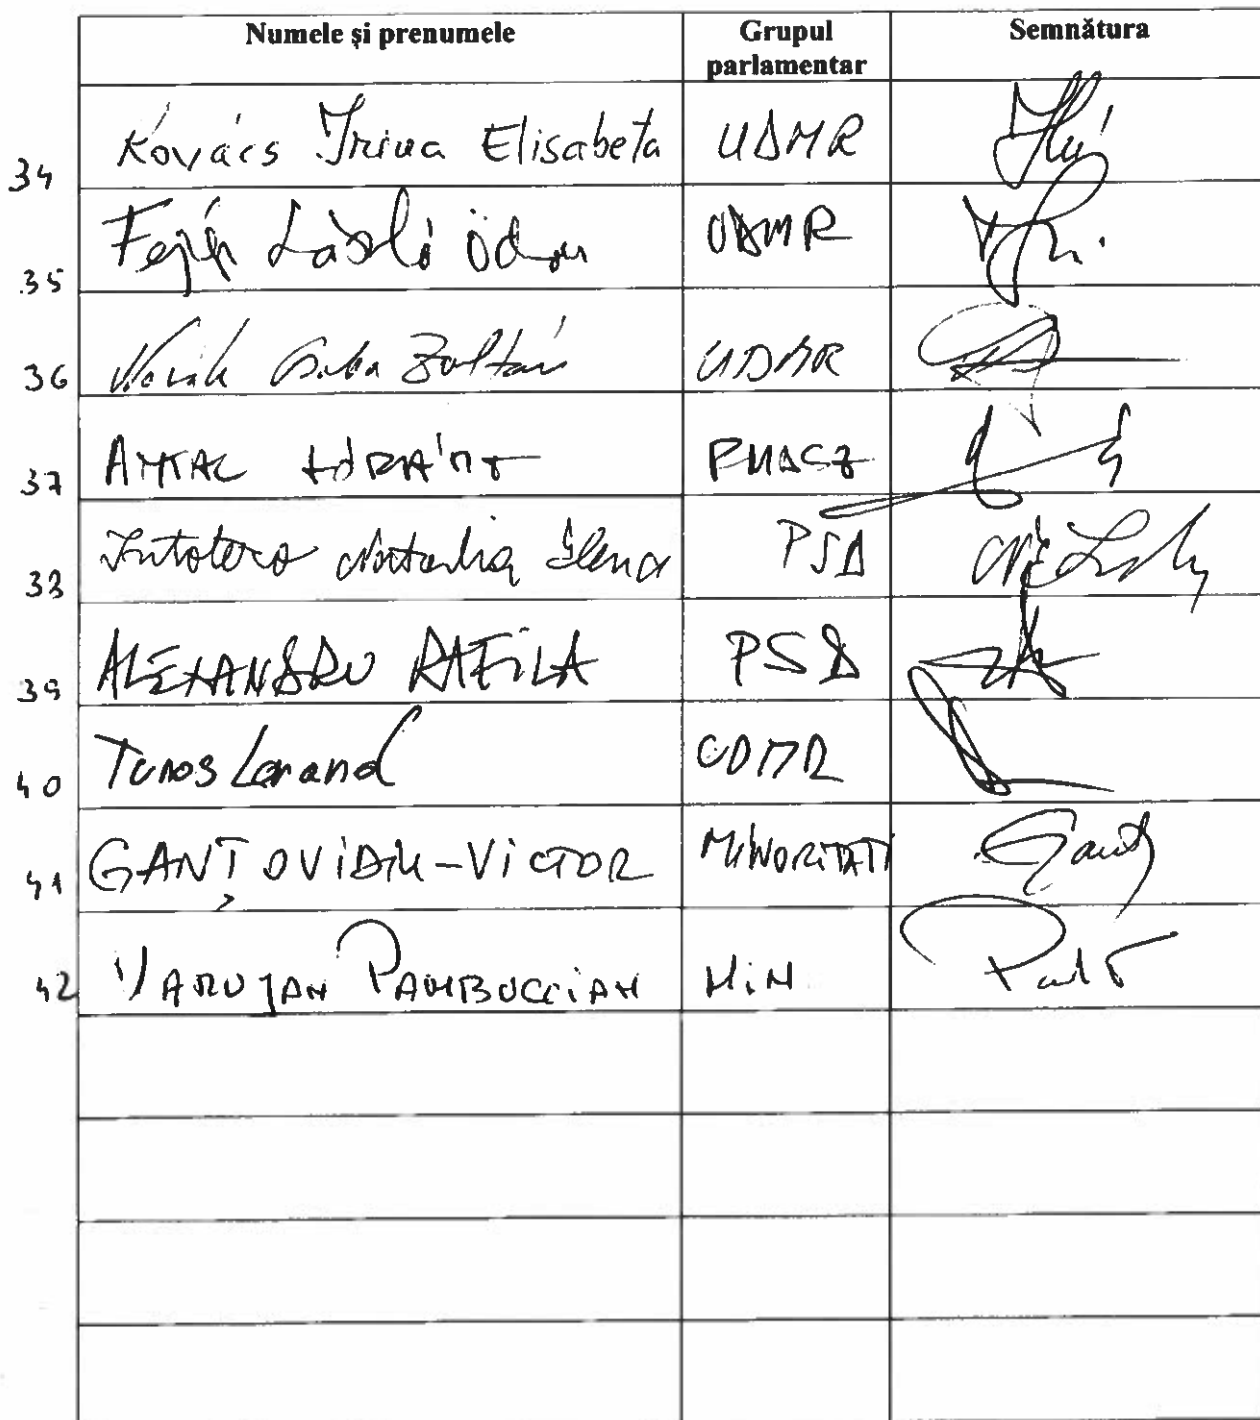 Numele și prenumele Grupul parlamentar Semnătura
34 Kovács Irina Elisabeta UDMR
35 Fejér László Ödön UDMR
36 Novák Csaba Zoltán UDMR
37 Antal Lóránt RMDSZ
38 Intotero Natalia Elena PSD
39 ALEXANDRU RAFILA PSD
40 Turos Lorand UDMR
41 GANȚ OVIDIU-VICTOR MINORITATI
42 VARUJAN PAMBUCCIAN MIN